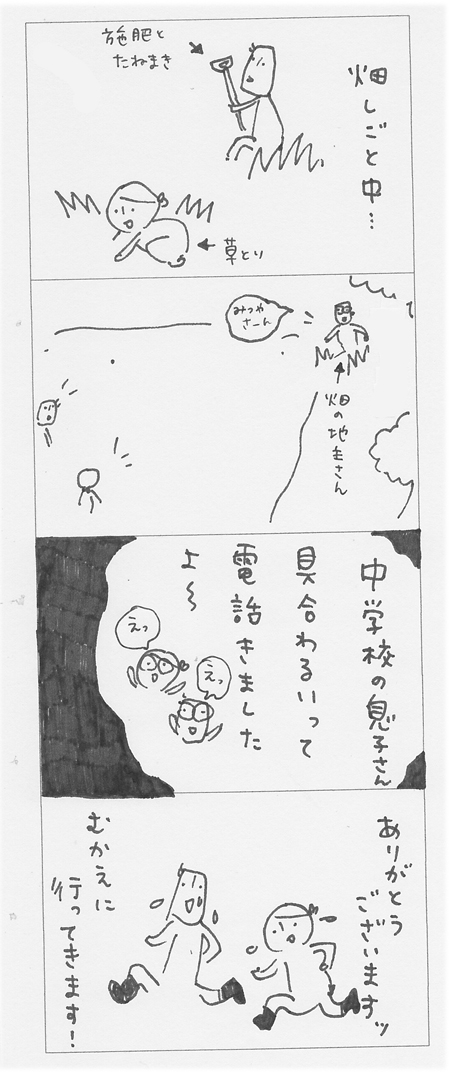 畑しごと中…
施肥と
たねまき
草とり
みつや
さーん
畑の地主さん
中学校の息子さん
具合わるいって
電話きました
よ〜
えっ
えっ
ありがとう
ございますッ
むかえに
行ってきます!